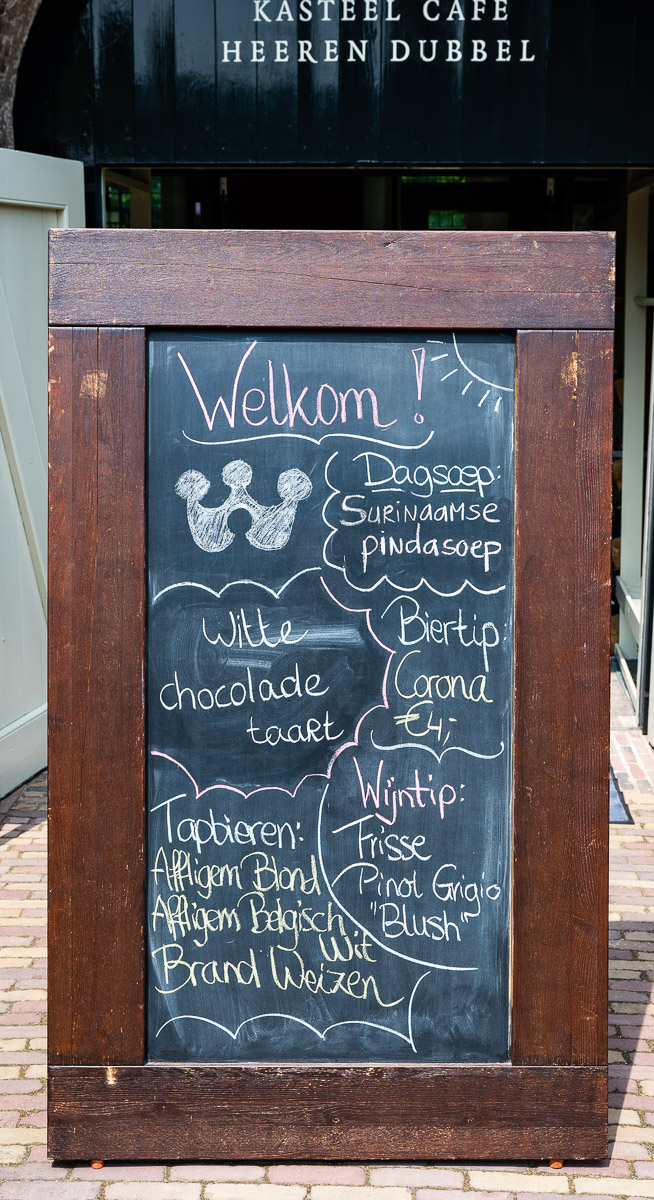 KASTEEL CAFE
HEEREN DUBBEL
Welkom!
Dagsoep:
Surinaamse
pindasoep
Witte
chocolade
taart
Biertip:
Corona
€4,-
Wijntip:
Frisse
Pinot Grigio
"Blush"
Tapbieren:
Affligem Blond
Affligem Belgisch
Wit
Brand Weizen